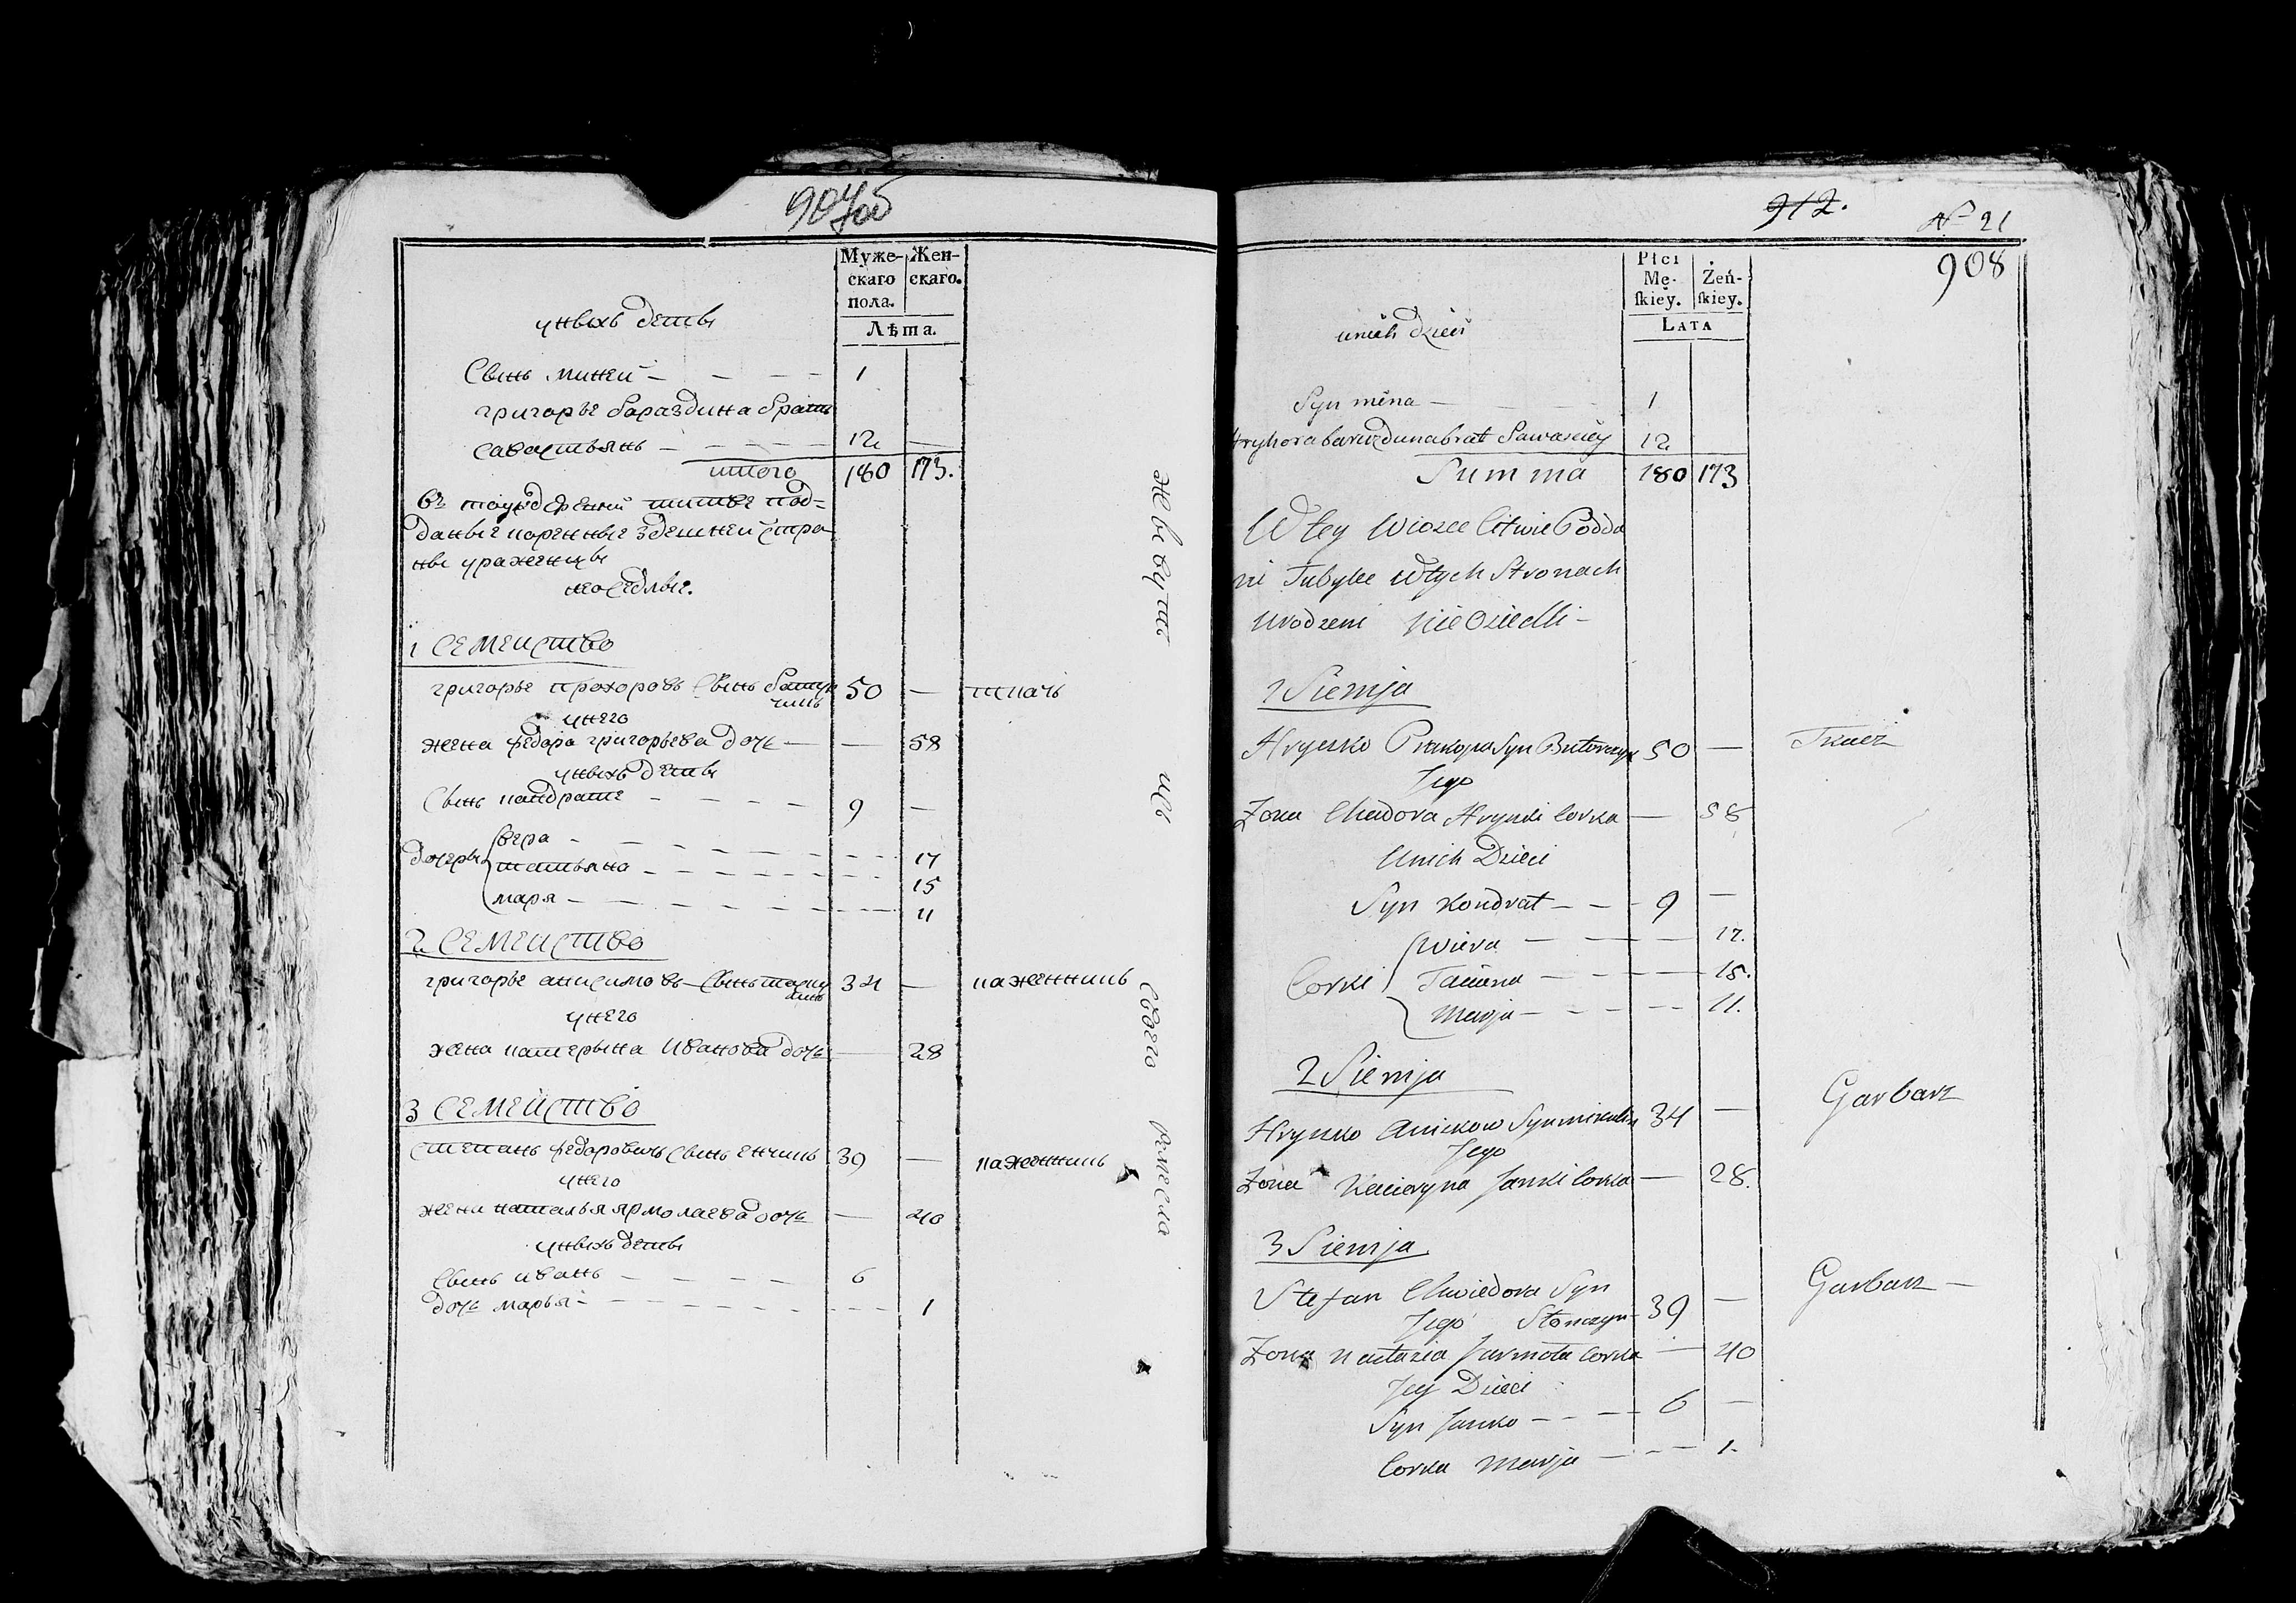 907об
Муже-
скаго
пола.
Жен-
скаго.
Лѣта.
унихъ дети
Сынъ миней — 1
григорье бараздина братъ
савастьянъ — 12 —
итого 180 173.
въ той деревни литве под-
даные коренные здешней стра
ны уроженцы
неоседлые.
1 Семейство
григорье прохоровъ сынъ батур
чинъ 50 — ткачъ
унего
жена федора григорьева дочь — — 58
унихъ дети
Сынъ кандрате 9 —
вера 17
дочеры татьяна 15
маря 11
2 Семейство
григорье анисимовъ сынъ 34 — кажевникъ
унего
жена катерына иванова дочь — 28
3 Семейство
степанъ федоровичъ сынъ 39 — кажевникъ
унего
жена наталья ярмолаева дочь — 40
унихъ дети
Сынъ иванъ 6
дочь марья 1
живутъ изъ своего ремесла
912.
№ 21
908
Płci
Mę-
ſkiey.
Żeń-
ſkiey.
Lata
unich dzieci
Syn mina — 1
Hryhora barazduna brat Sawasciey 12
Summa 180 173
W tey Wiosce Litwie Podda
ni Tubylce w tych Stronach
Urodzeni nieosiedli —
1 Siemja
Hrysko Prakopa Syn Buturczyn 50 — Tkacz
Jego
Zona Chadora Hrynki Corka — 58
Unich Dzieci
Syn Kondrat — 9 —
Wiera — 17.
Corki Taciana — 15.
Marja — 11.
2 Siemja
Hrysko Anickow Syn 34 — Garbarz
Jego
Zona Kacieryna Janki Corka — 28.
3 Siemja
Stefan Chwiedora Syn
Jego 39 — Garbarz —
Zona Nastazia Jarmoła Corka — 40
Jey Dzieci
Syn Janko — 6 —
Corka Marja — 1.